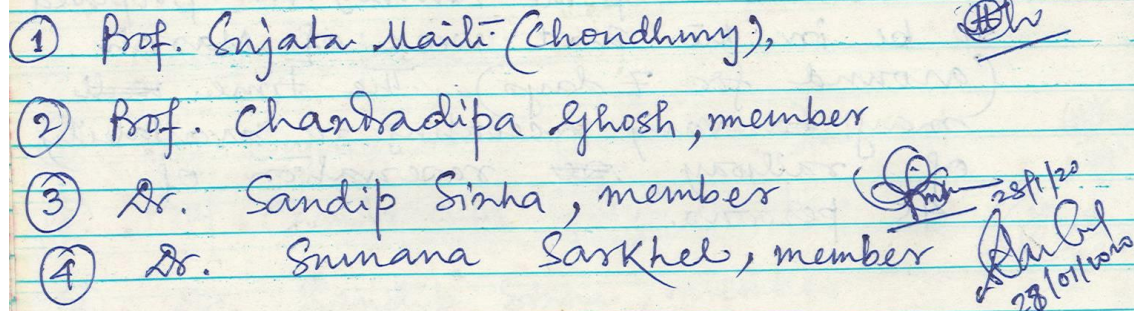 ① Prof. Sujata Maiti (Choudhury),
② Prof. Chandradipa Ghosh, member
③ Dr. Sandip Sinha, member 28/1/20
④ Dr. Sumana Sarkhel, member
28/01/2020